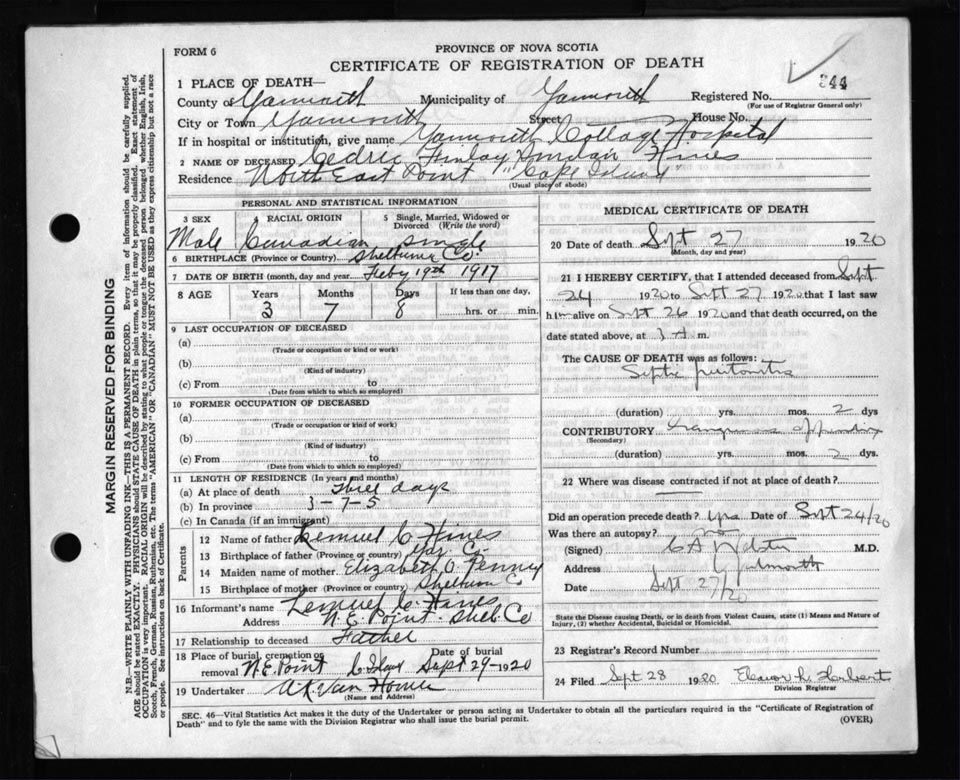 FORM 6
PROVINCE OF NOVA SCOTIA
CERTIFICATE OF REGISTRATION OF DEATH
344
1 PLACE OF DEATH—
County of Yarmouth Municipality of Yarmouth Registered No.
(For use of Registrar General only)
City or Town Yarmouth Street House No.
If in hospital or institution, give name Yarmouth Cottage Hospital
2 NAME OF DECEASED Cedric Finlay Hines
Residence North East Point "Cape Island"
(Usual place of abode)
PERSONAL AND STATISTICAL INFORMATION
3 SEX 4 RACIAL ORIGIN 5 Single, Married, Widowed or Divorced (Write the word)
Male Canadian single
6 BIRTHPLACE (Province or Country) Shelburne Co.
7 DATE OF BIRTH (month, day and year. Feby 19th 1917
8 AGE Years Months Days If less than one day,
3 7 8 hrs. or min.
9 LAST OCCUPATION OF DECEASED
(a)
(Trade or occupation or kind or work)
(b)
(Kind of industry)
(c) From to
(Date from which to which so employed)
10 FORMER OCCUPATION OF DECEASED
(a)
(Trade or occupation or kind of work)
(b)
(Kind of industry)
(c) From to
(Date from which to which so employed)
11 LENGTH OF RESIDENCE (In years and months)
(a) At place of death three days
(b) In province 3-7-5
(c) In Canada (if an immigrant)
Parents
12 Name of father Lemuel C Hines
13 Birthplace of father (Province or country) Yar. Co.
14 Maiden name of mother Elizabeth O. Penny
15 Birthplace of mother (Province or country) Shelburne Co
16 Informant's name Lemuel C. Hines
Address N.E. Point Shel. Co
17 Relationship to deceased Father
18 Place of burial, cremation or removal N.E. Point C. Island Date of burial Sept 29-1920
19 Undertaker A. Van Horne
(Name and Address)
MEDICAL CERTIFICATE OF DEATH
20 Date of death Sept 27 1920
(Month, day and year)
21 I HEREBY CERTIFY, that I attended deceased from Sept
24 1920 to Sept 27 1920 that I last saw
him alive on Sept 26 1920 and that death occurred, on
date stated above, at 3 A m.
The CAUSE OF DEATH was as follows:
Septic peritonitis
(duration) yrs. mos. 2 dys
CONTRIBUTORY gangrenous appendix
(Secondary)
(duration) yrs. mos. 2 dys.
22 Where was disease contracted if not at place of death?
Did an operation precede death? yes Date of Sept 24/20
Was there an autopsy? no
(Signed) C A Webster M.D.
Address Yarmouth
Date Sept 27/20
State the Disease causing Death, or in death from Violent Causes, state (1) Means and Nature of Injury, (2) whether Accidental, Suicidal or Homicidal.
23 Registrar's Record Number
24 Filed Sept 28 1920 Eleanor L. Herbert
Division Registrar
SEC. 46—Vital Statistics Act makes it the duty of the Undertaker or person acting as Undertaker to obtain all the particulars required in the "Certificate of Registration of
Death" and to fyle the same with the Division Registrar who shall issue the burial permit.
(OVER)
MARGIN RESERVED FOR BINDING
N.B.—WRITE PLAINLY WITH UNFADING INK—THIS IS A PERMANENT RECORD. Every item of information should be carefully supplied.
AGE should be stated EXACTLY. PHYSICIANS should STATE CAUSE OF DEATH in plain terms, so that it may be properly classified. Exact statement of
OCCUPATION is very important. RACIAL ORIGIN will be described by stating to what people or tongue the deceased person belonged whether English, Irish,
Scotch, French, German, Russian, Ruthenian, etc. The terms "AMERICAN" or "CANADIAN" MUST NOT BE USED as they express citizenship but not a race
or people. See instructions on back of Certificate.